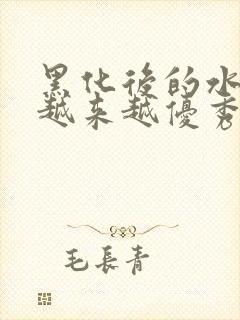 黑化後的水
越来越優秀
毛長青